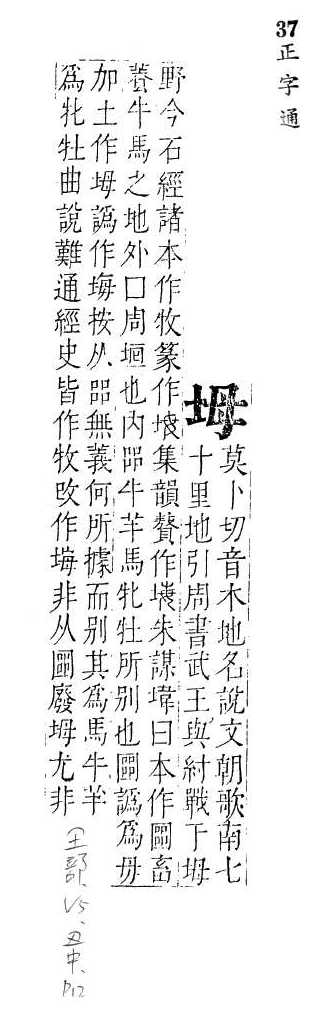 37
正字通
坶
莫卜切音木地名說文朝歌南七
十里地引周書武王與紂戰于坶
野今石經諸本作牧篆作集韻贅作朱謀㙔曰本作畜
養牛馬之地外口周垣也內㗊牛羊馬牝牡所別也譌爲毋
加土作坶譌作按从㗊無義何所據而別其爲馬牛羊
爲牝牡曲說難通經史皆作牧改作非从廢坶尤非
土部、V5、丑中、P12